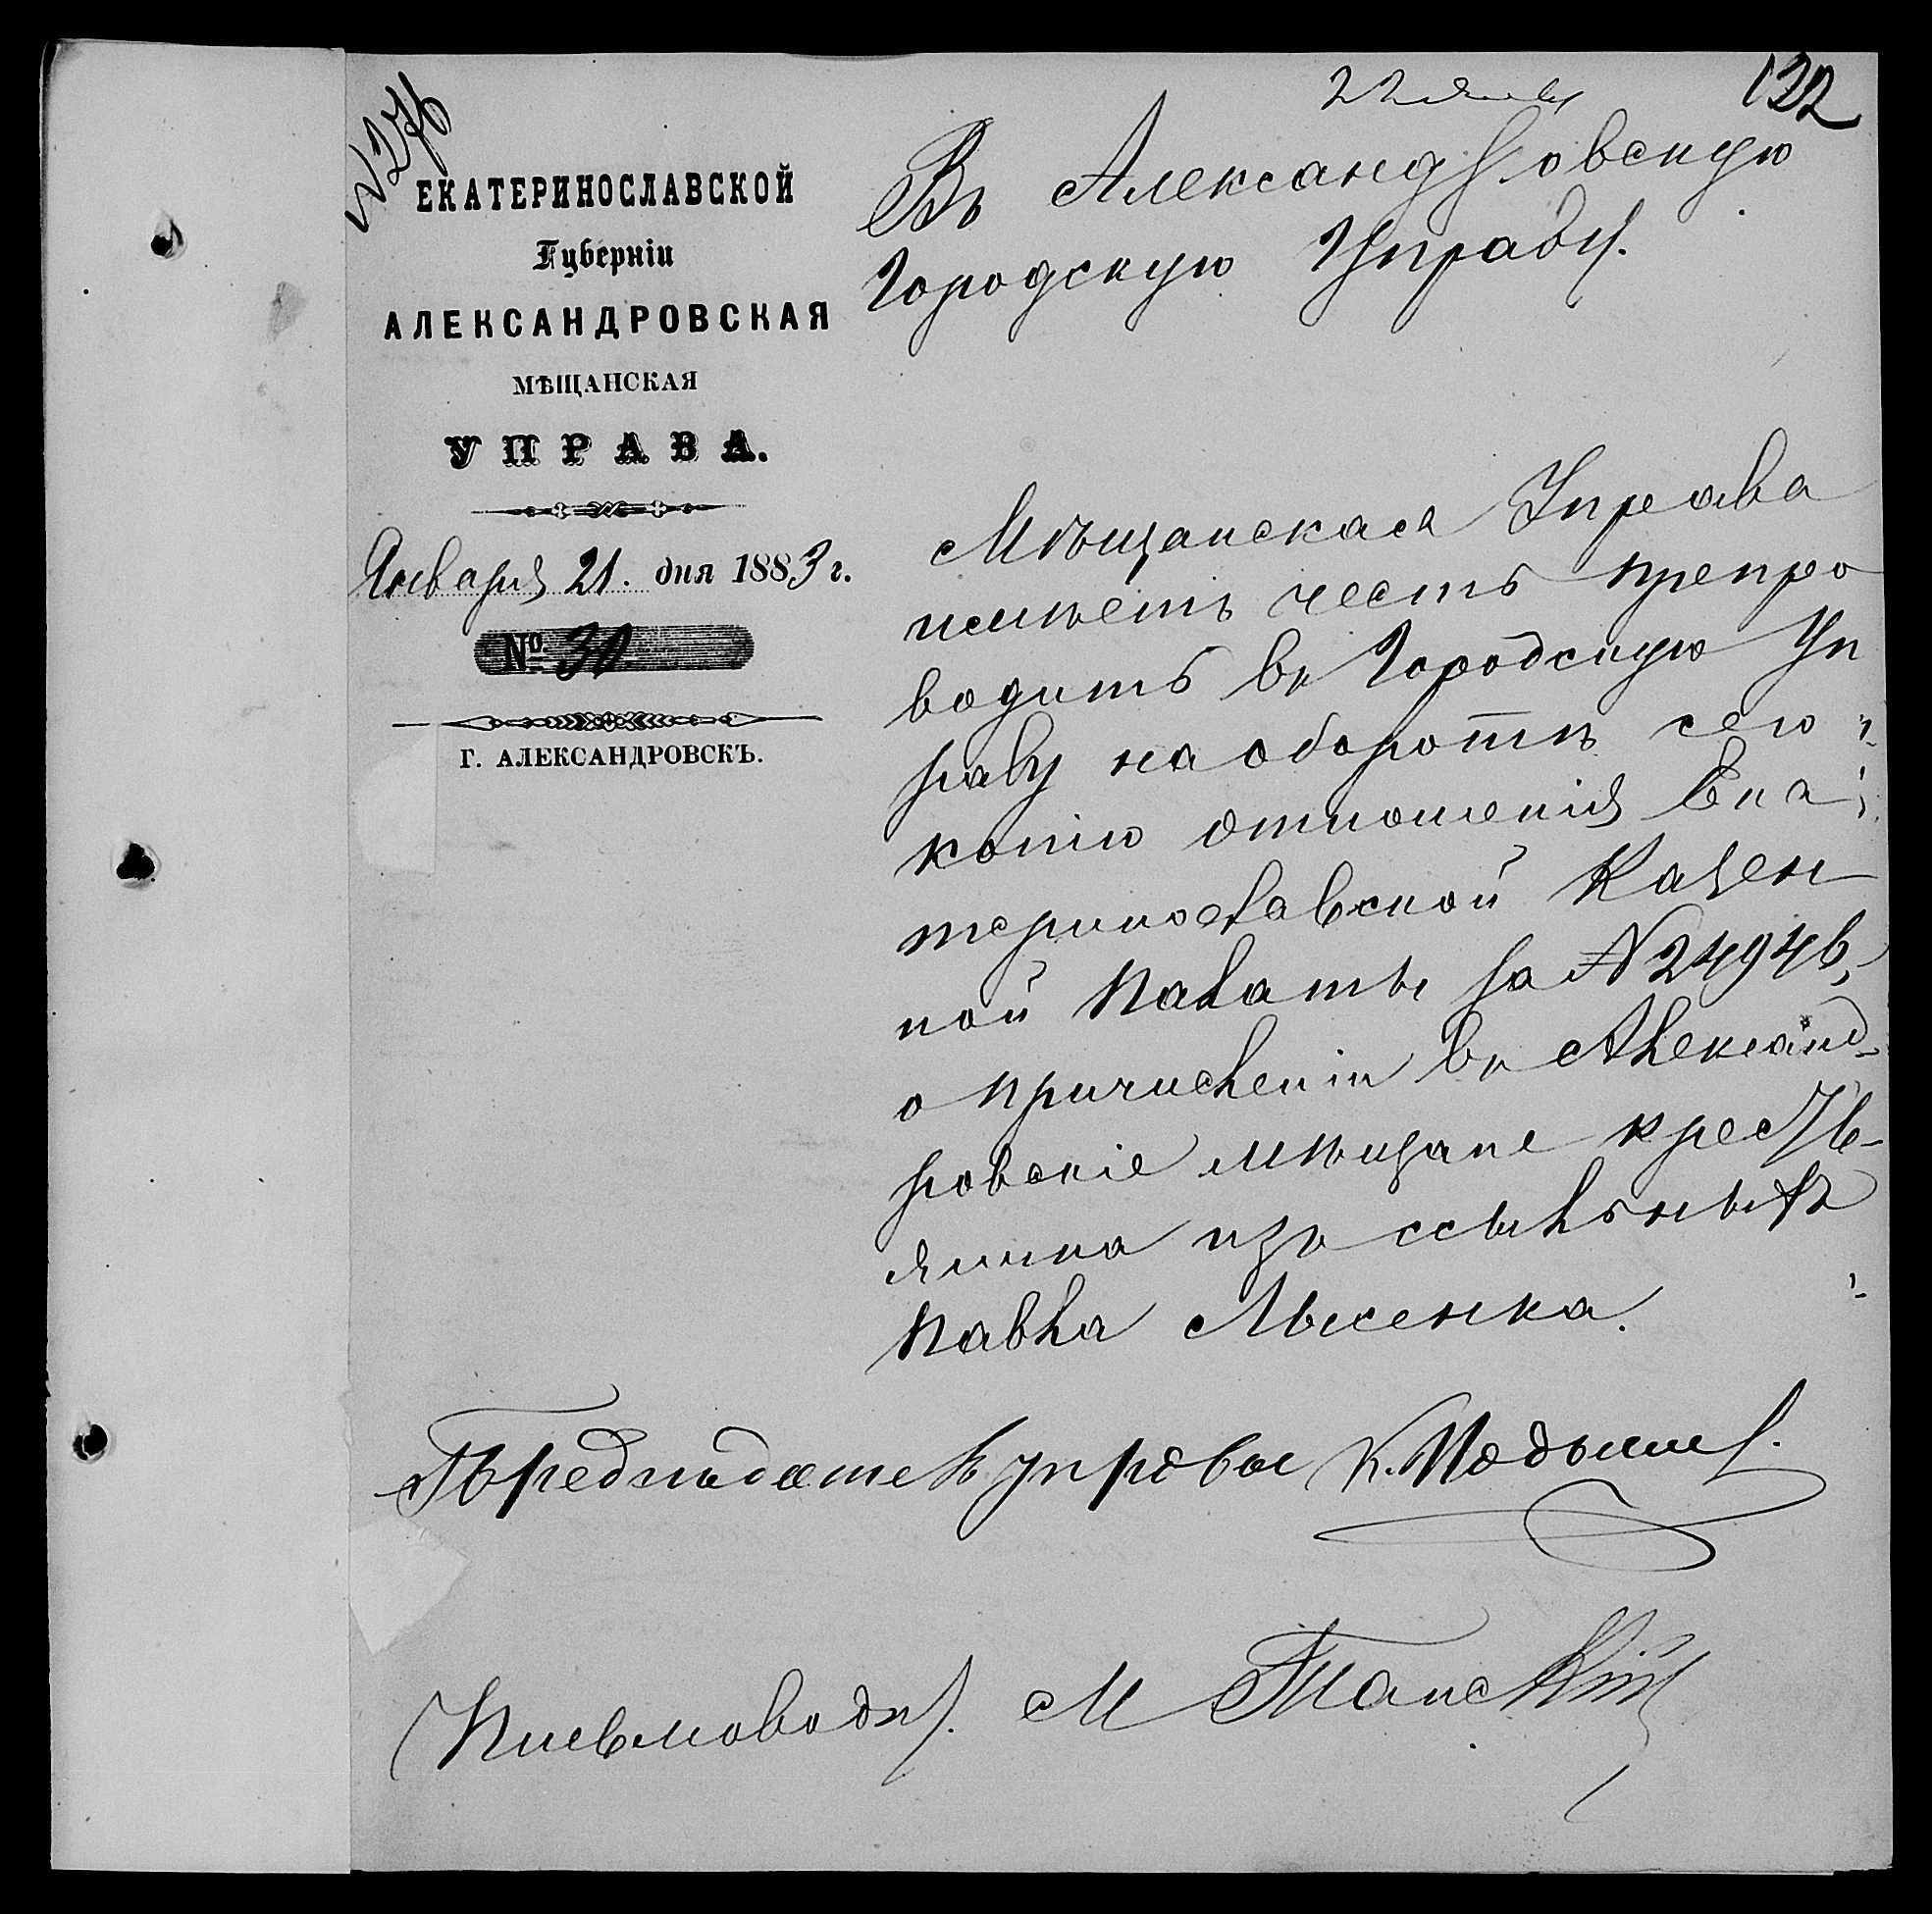 132
22 янв
№ 276
ЕКАТЕРИНОСЛАВСКОЙ
Губерніи
АЛЕКСАНДРОВСКАЯ
МѢЩАНСКАЯ
УПРАВА.
Января 21. дня 1883 г.
№ 30
Г. АЛЕКСАНДРОВСКЪ.
Въ Александровскую
Городскую Управу.
Мѣщанская Управа
имѣетъ честь препро
водить въ Городскую Уп
раву на оборотѣ сего
копію отношенія Ека
теринославской Казен
ной Палаты за №
о причисленіи въ Александ-
ровскіе мѣщане крестья-
нина изъ ссыльныхъ
Павла Лысенка.
Предсѣдатель управы К.
Письмоводи.  М